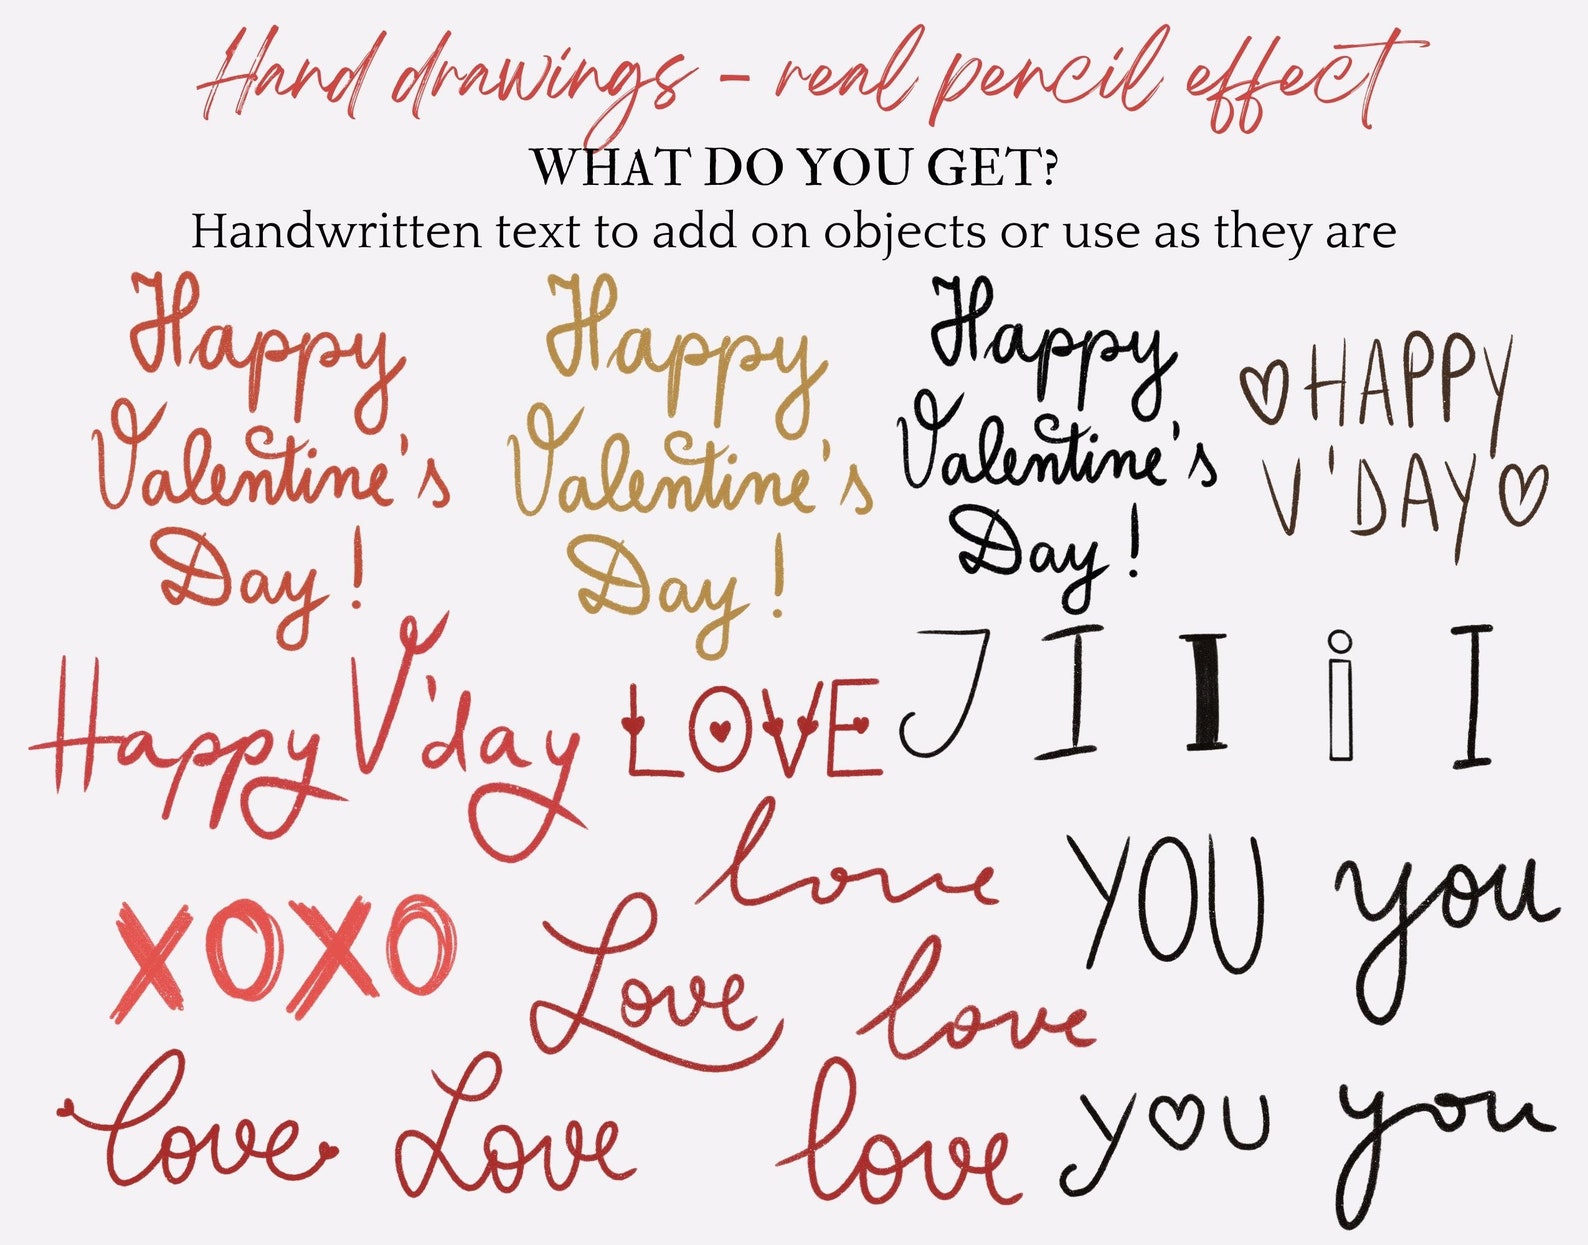 Hand drawings - real pencil effect
WHAT DO YOU GET?
Handwritten text to add on objects or use as they are
Happy
Valentine's
Day!
Happy
Valentine's
Day!
Happy
Valentine's
Day!
HAPPY
V'DAY
Happy V'day
LOVE
I I I i I
love
YOU
you
XOXO
Love
love
love
Love
love
you
you